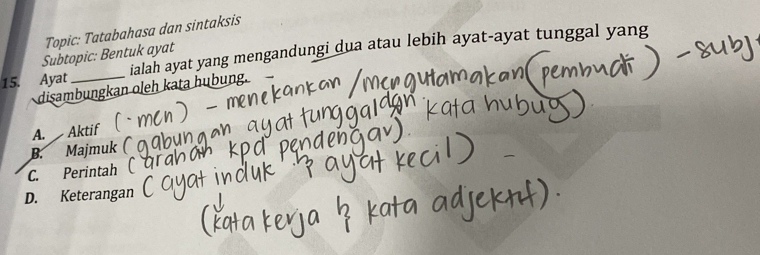 Topic: Tatabahasa dan sintaksis
Subtopic: Bentuk ayat
15. Ayat ______ ialah ayat yang mengandungi dua atau lebih ayat-ayat tunggal yang
disambungkan oleh kata hubung.
A. Aktif (-men) - menekankan /mengutamakan (pembuat) - subj
B. Majmuk (gabungan ayat tunggal dgn kata hubug).
C. Perintah (arahan kpd pendengar).
D. Keterangan (ayat induk & ayat kecil) -
(kata kerja & kata adjektif).